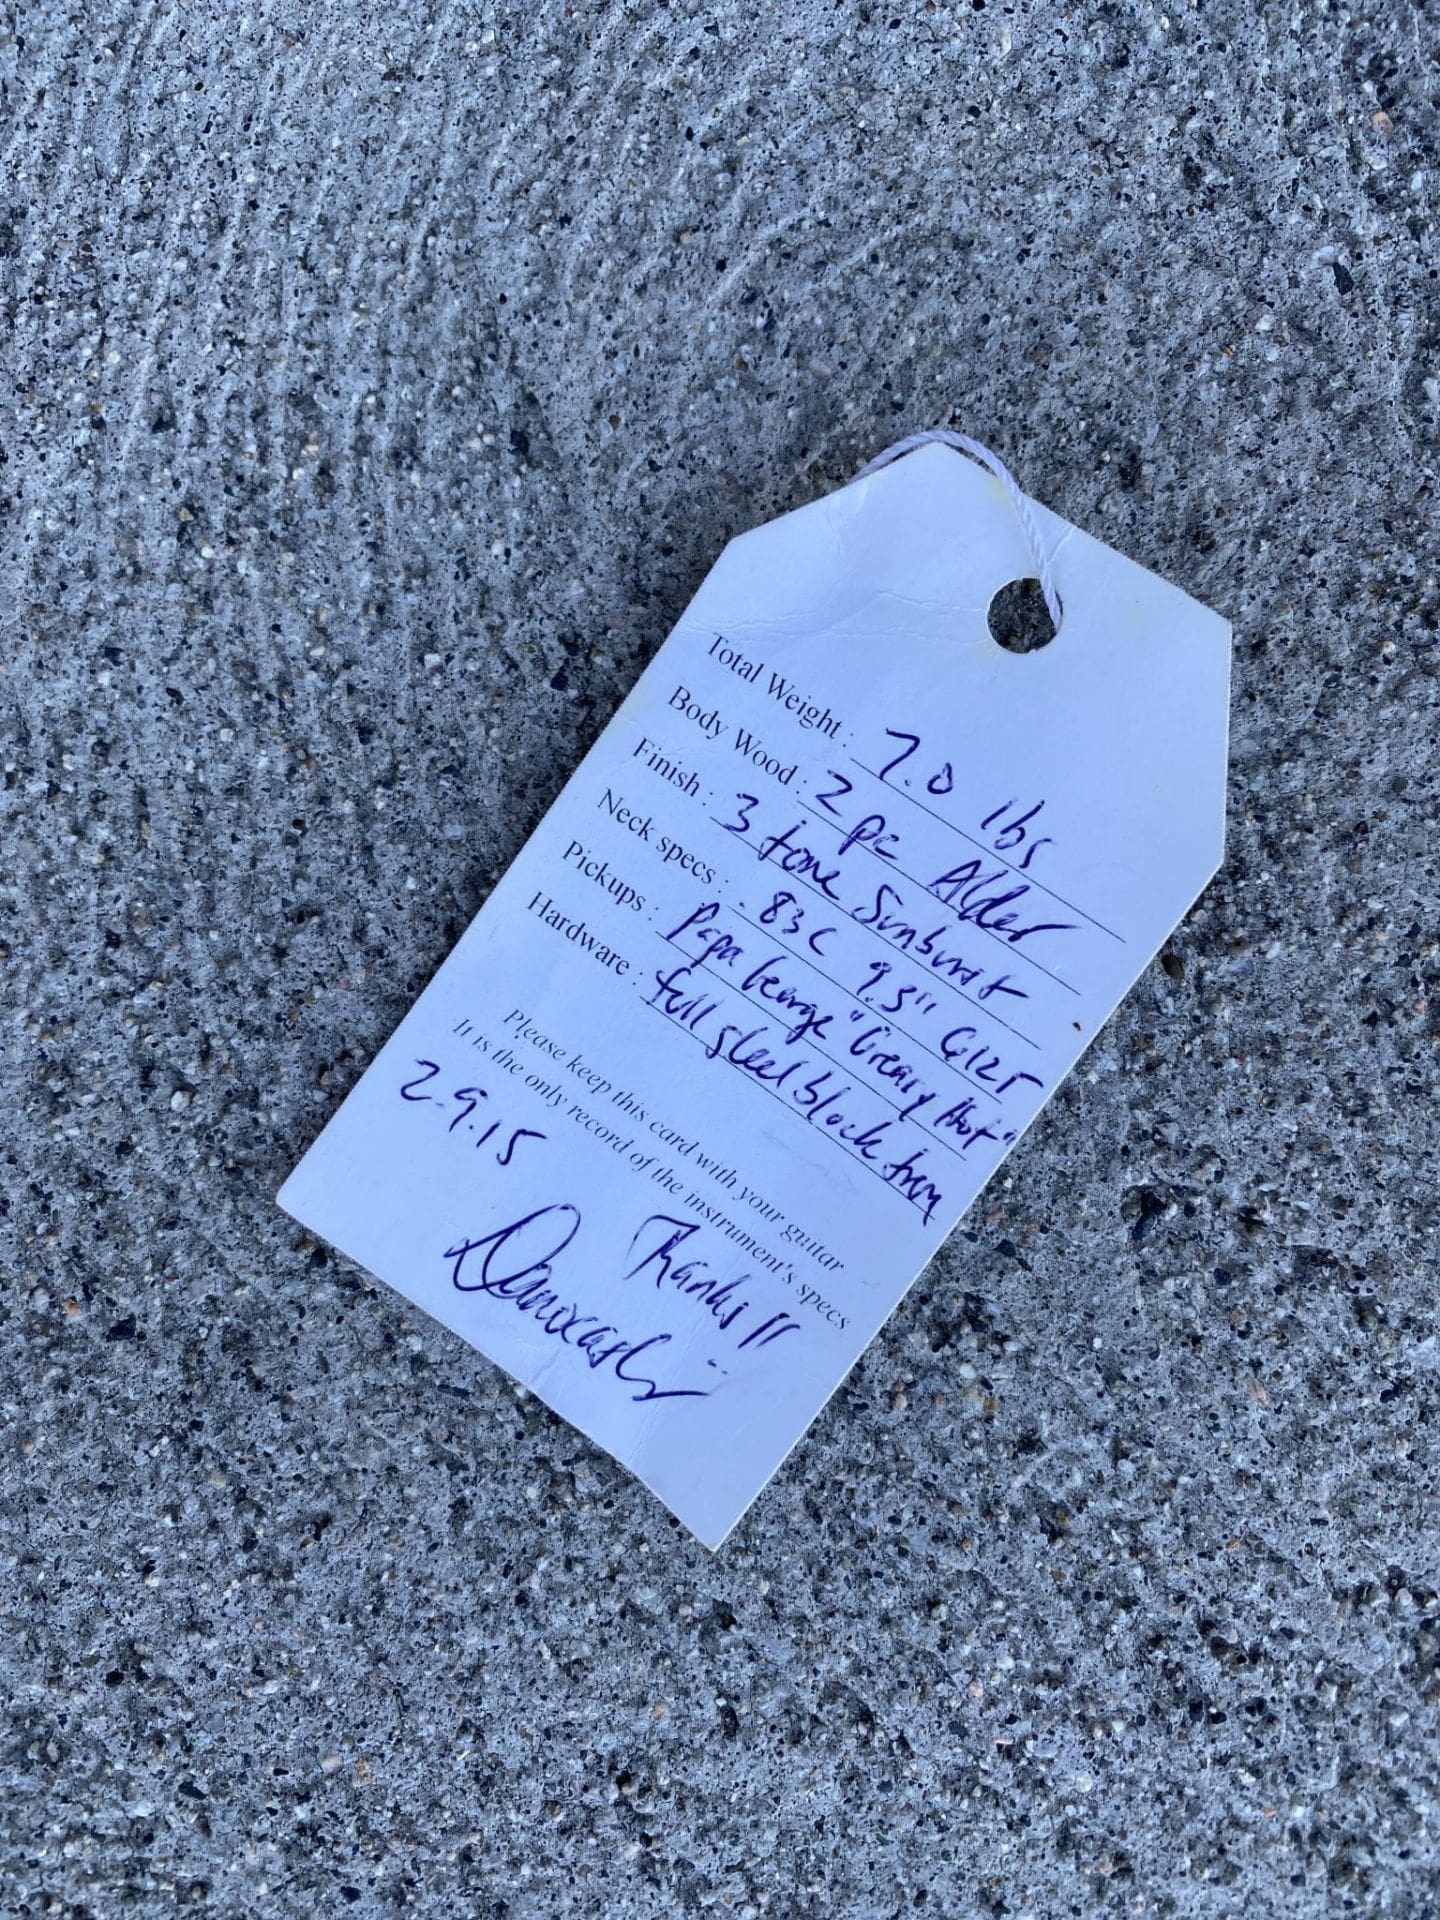 Total Weight : 7.0 lbs
Body Wood : 2 pc Alder
Finish : 3 tone Sunburst
Neck specs : .83 C 9.5" 6125
Pickups : Papa George "Greasy Hot"
Hardware : full steel block trem
Please keep this card with your guitar
It is the only record of the instrument's specs
2.9.15
Thanks!!
Danocaster